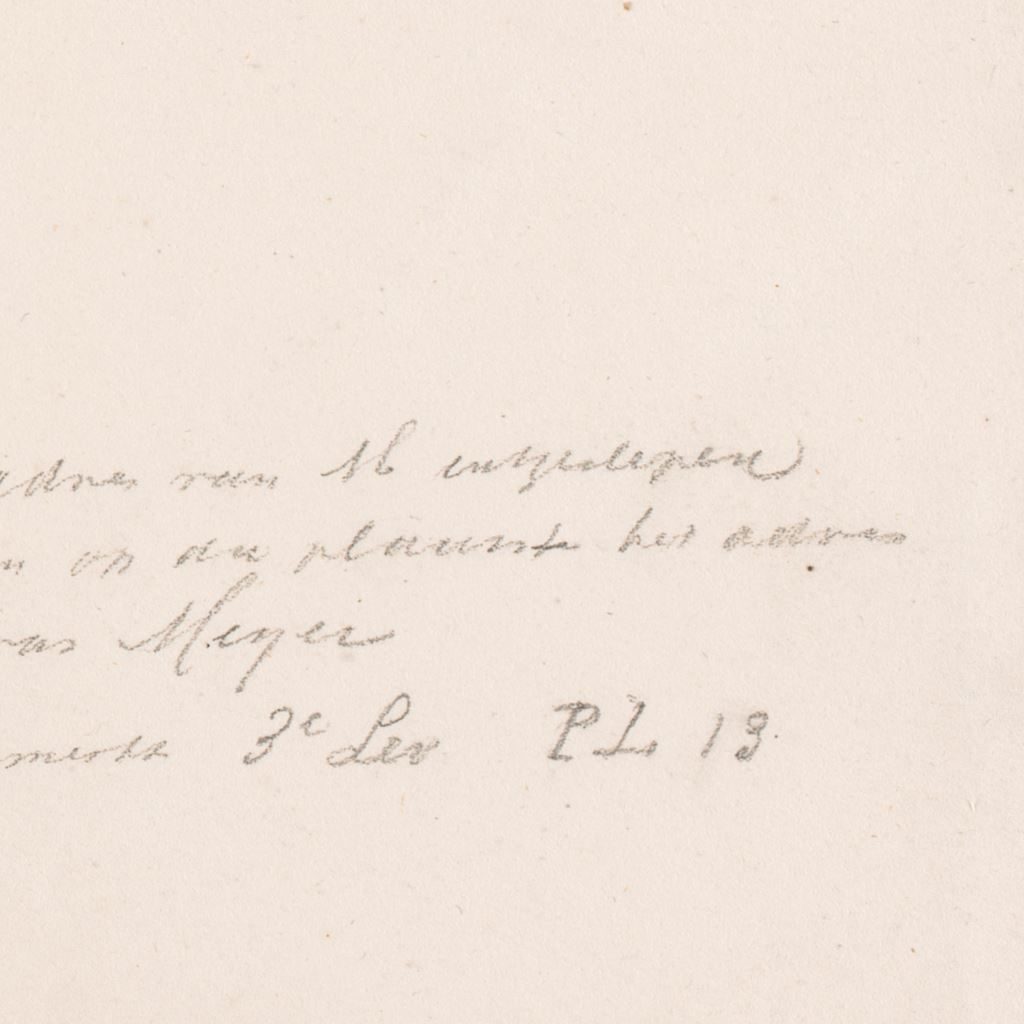 adres van M uitgeslepen
n op die plaats het adres
van Meyer
merkt 3e Lev PL 13